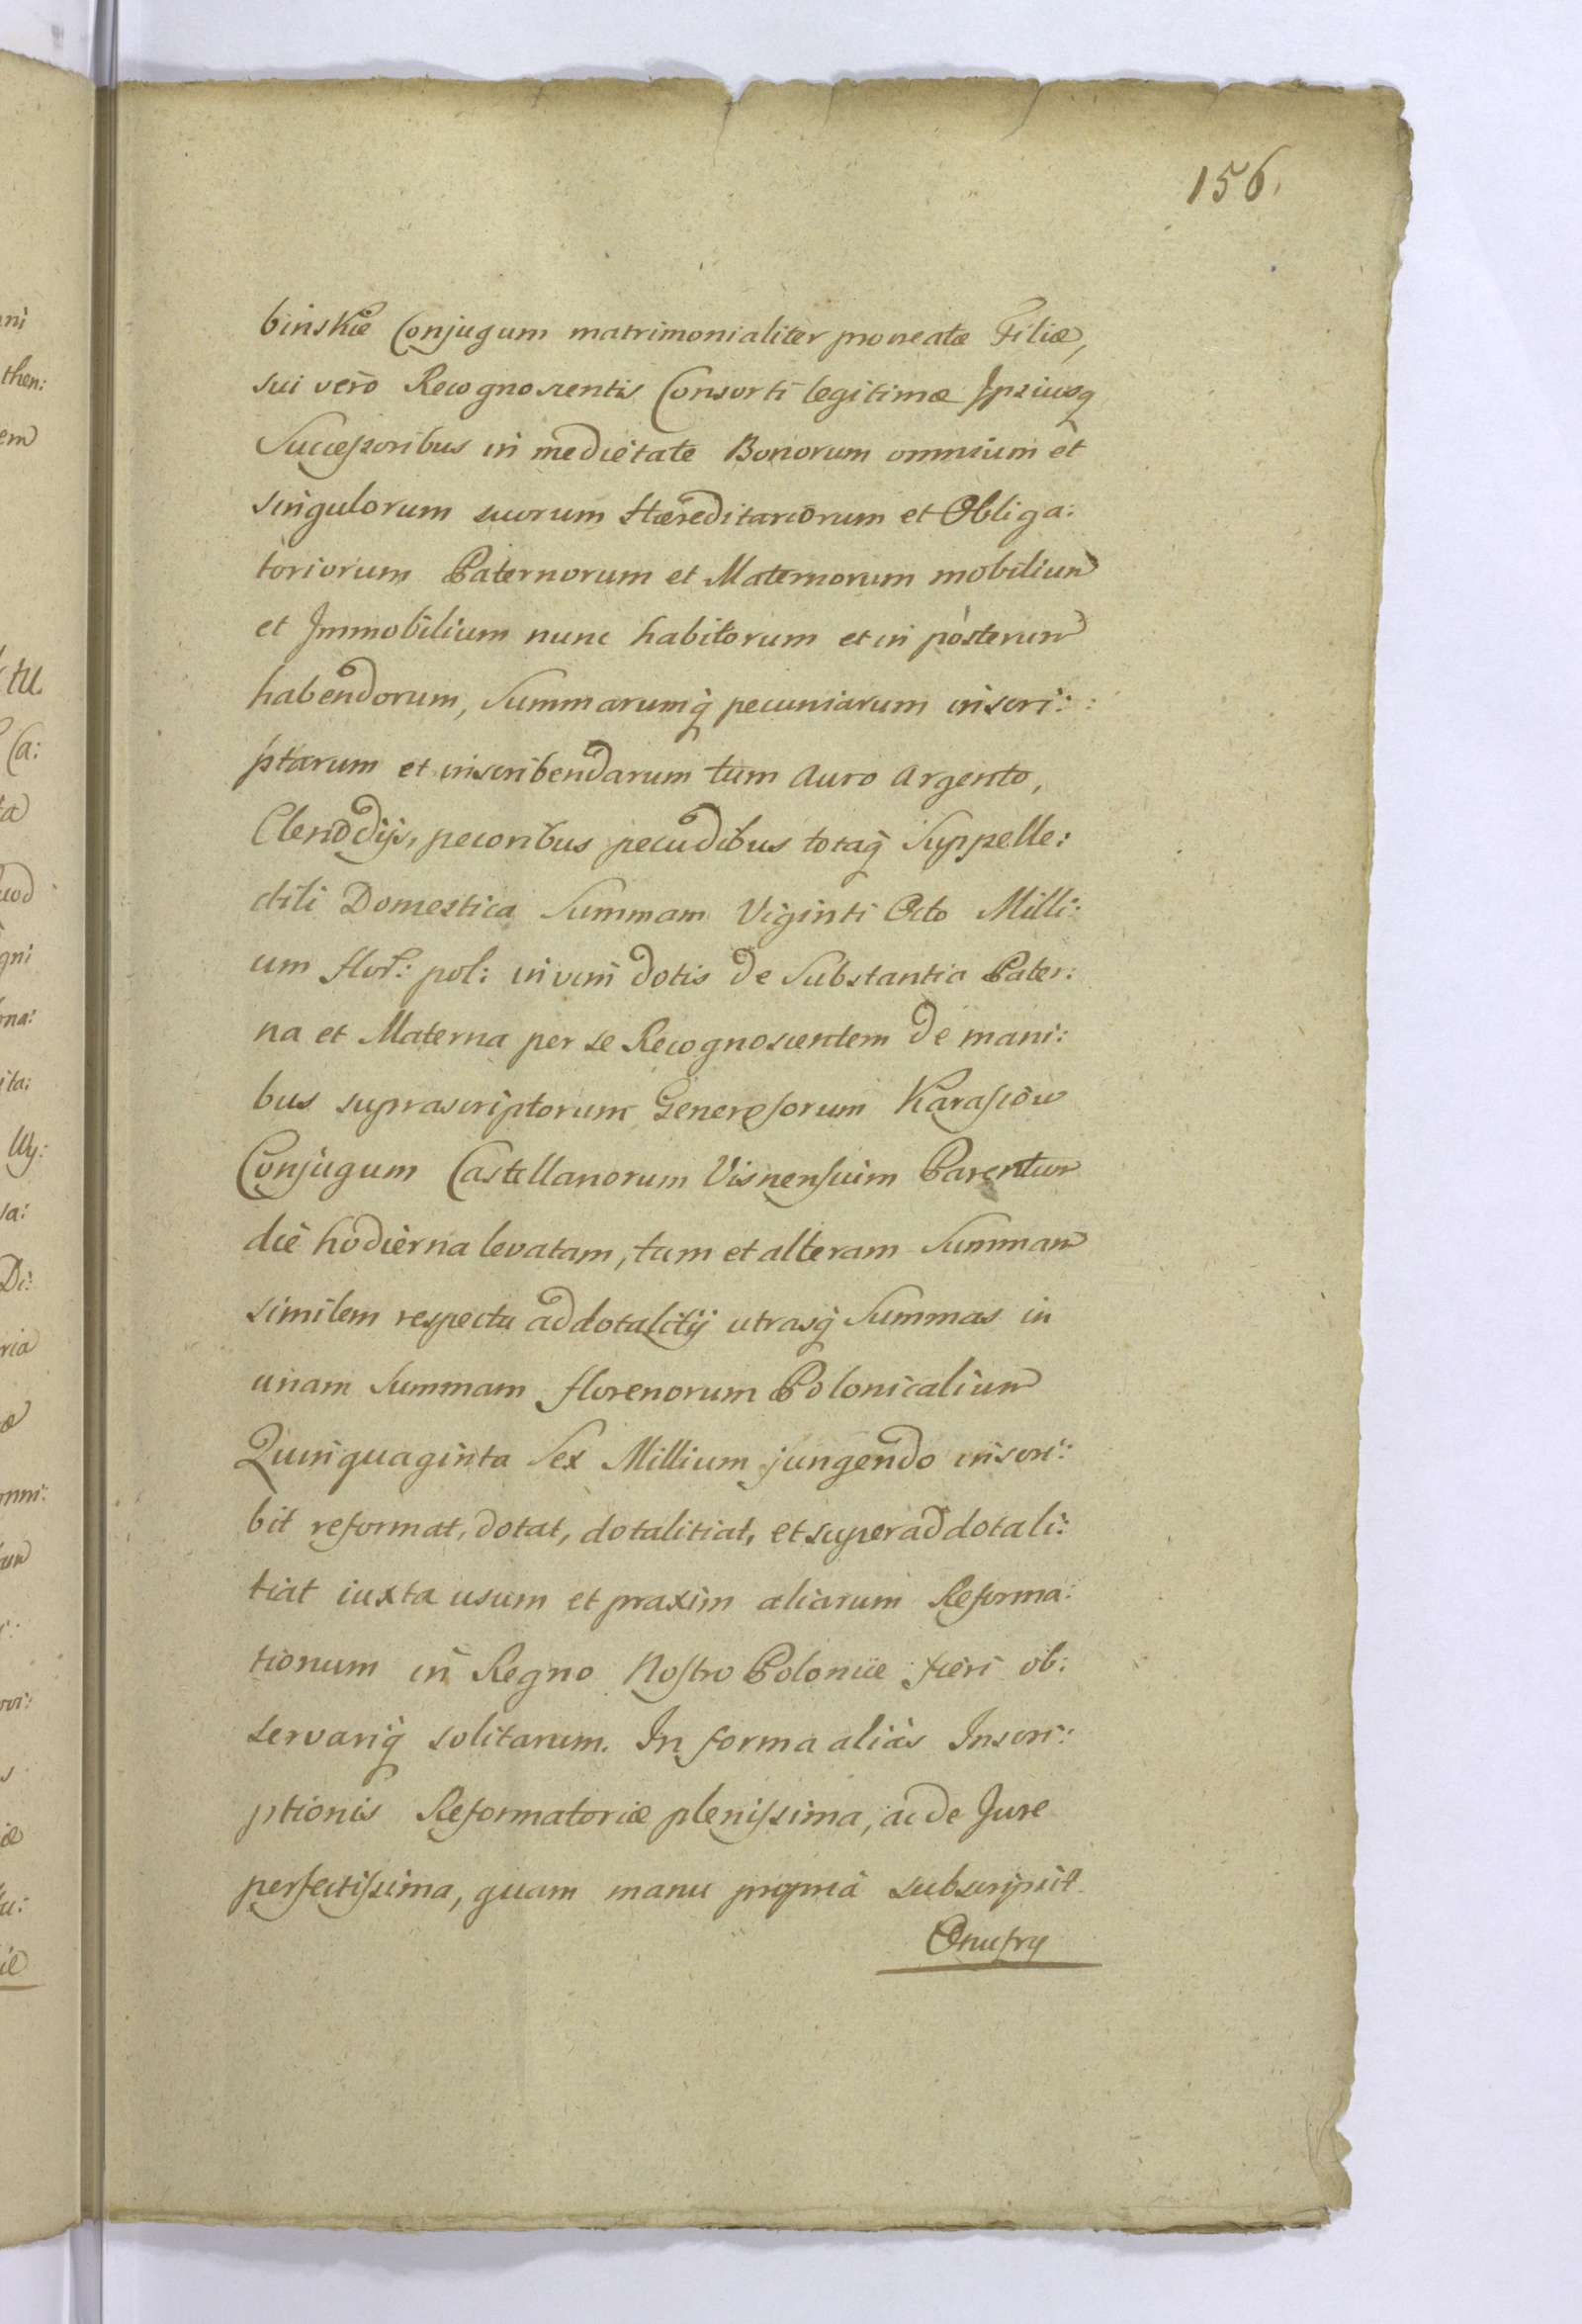 156.
binskiæ Conjugum matrimonialiter procreatæ Filiæ,
sui vero Recognoscentis Consorti legitimæ Ipsiusq
Successoribus in medietate Bonorum omnium et
singulorum suorum Hæreditariorum et Obliga:
toriorum Paternorum et Maternorum mobilium
et Immobilium nunc habitorum et in posterum
habendorum, Summarumq pecuniarum inscri:
ptarum et inscribendarum tum Auro Argento,
Clenodijs, pecoribus pecudibus totaq Suppelle:
ctili Domestica Summam Viginti Octo Milli:
um flor: pol: in vim dotis de Substantia Pater:
na et Materna per se Recognoscentem de mani:
bus suprascriptorum Generosorum Karasiow
Conjugum Castellanorum Visnensium Parentum
die hodierna levatam, tum et alteram Summam
similem respectu addotalitij utrasq Summas in
unam Summam florenorum Polonicalium
Quinquaginta Sex Millium jungendo inscri:
bit reformat, dotat, dotalitiat, et superaddotali:
tiat iuxta usum et praxim aliarum Reforma:
tionum in Regno Nostro Poloniæ fieri ob:
servariq solitarum. In forma alias Inscri:
ptionis Reformatoriæ plenissima, ac de Jure
perfectissima, quam manu propria subscripsit
Onufry